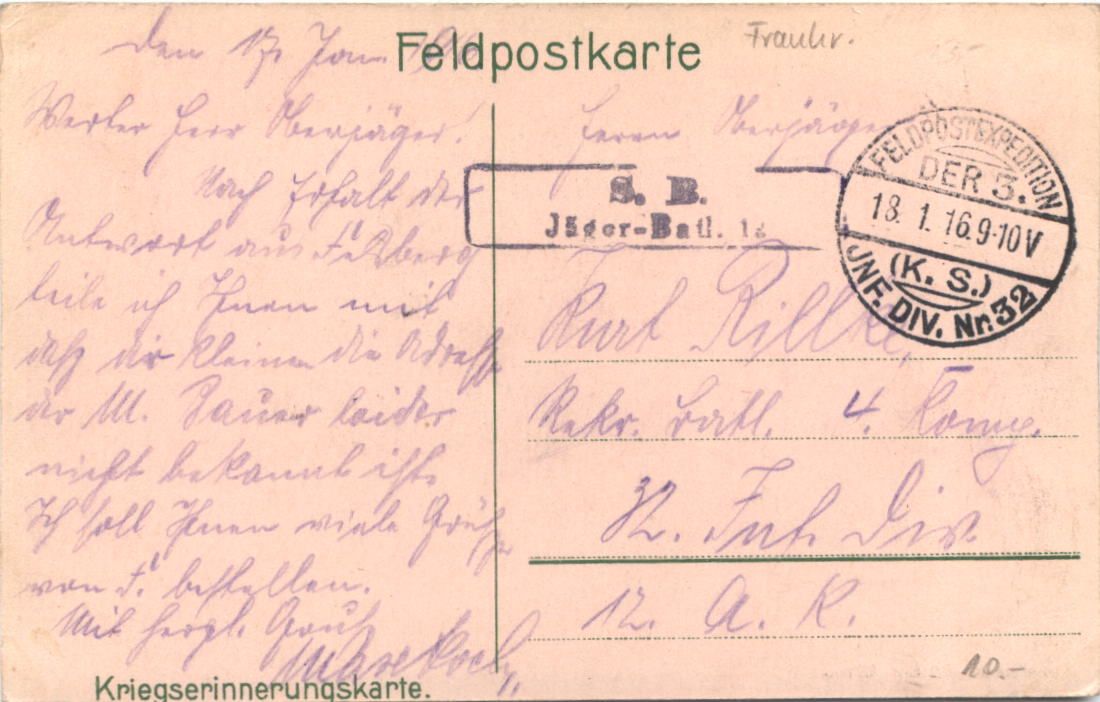 Feldpostkarte
Frankr.
Den 17. Jan. 1916
Werter Herr Oberjäger!
Nach Erhalt der
Antwort aus
teile ich Ihnen mit
daß die Kleinen die Adresse
der M. Sauer leider
nicht bekannt ist.
Ich soll Ihnen viele Grüße
von bestellen.
Mit herzl. Gruß
Kriegserinnerungskarte.
Herrn Oberjäger
S. B.
Jäger-Batl.
FELDPOSTEXPEDITION
DER 3.
18. 1. 16. 9-10 V
(K. S.)
INF. DIV. Nr. 32
Kurt Rillke,
Rekr. Batl. 4. Komp.
32. Inf. Div.
12. A. K.
10.-